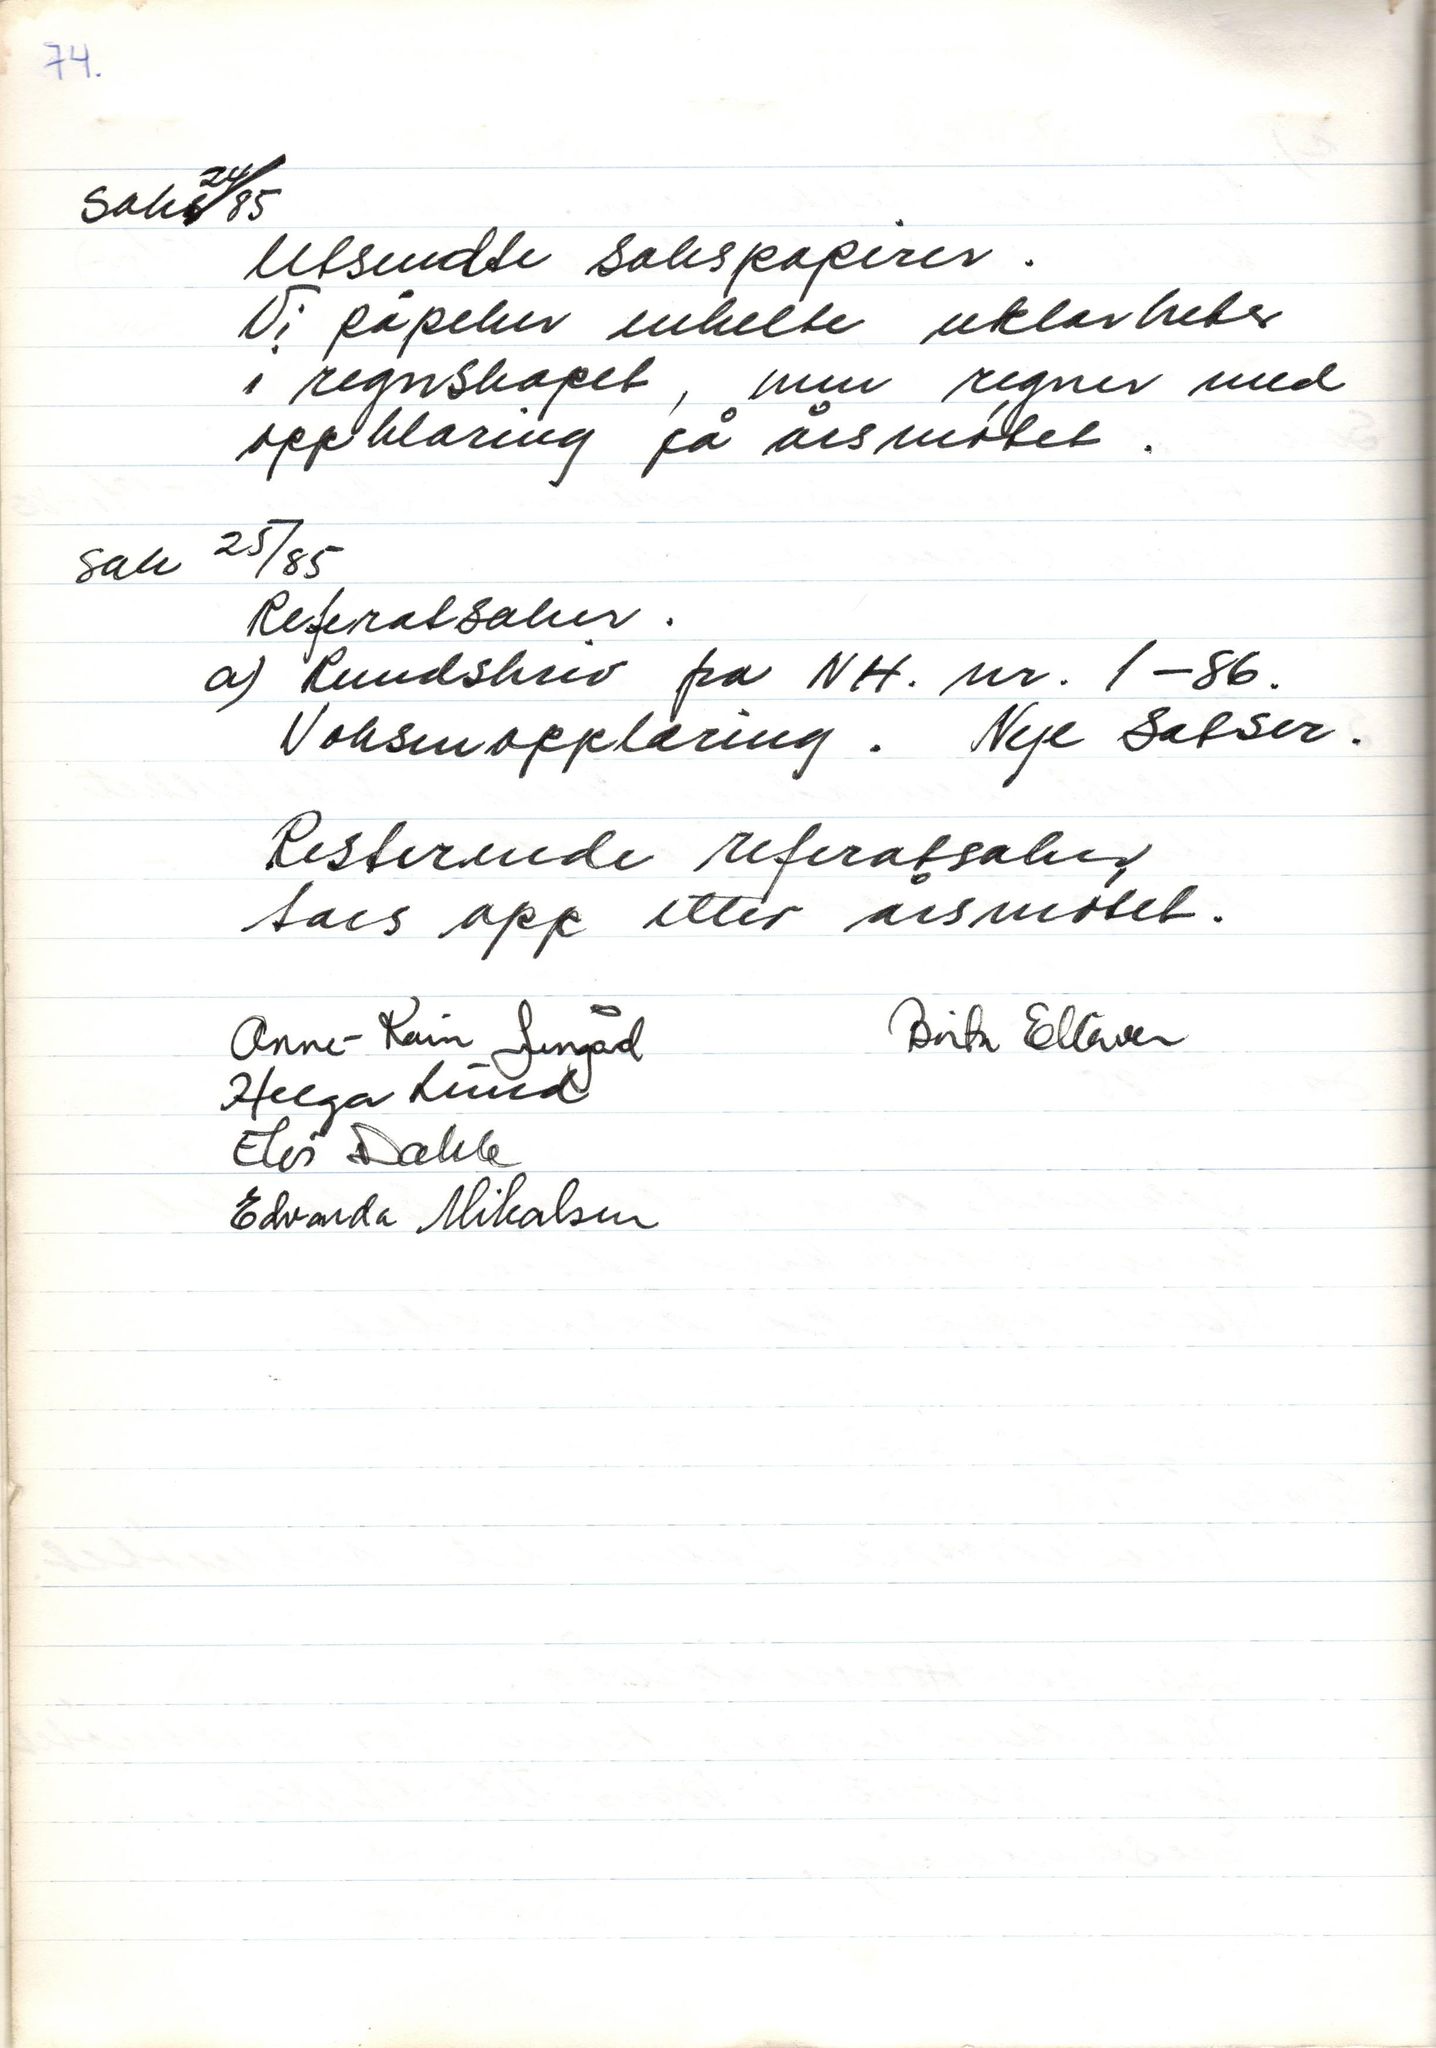 74.
Sak 24/85
Utsendte sakspapirer.
Vi påpeker enkelte uklarheter
i regnskapet, men regner med
oppklaring på årsmøtet.
Sak 25/85
Referatsaker.
a) Rundskriv fra NH. nr. 1-86.
Voksenopplæring. Nye Satser.
Resterende referatsaker
taes opp etter årsmøtet.
Anne-Karin
Helga Lund
Elis Dahle
Edvarda Mikalsen